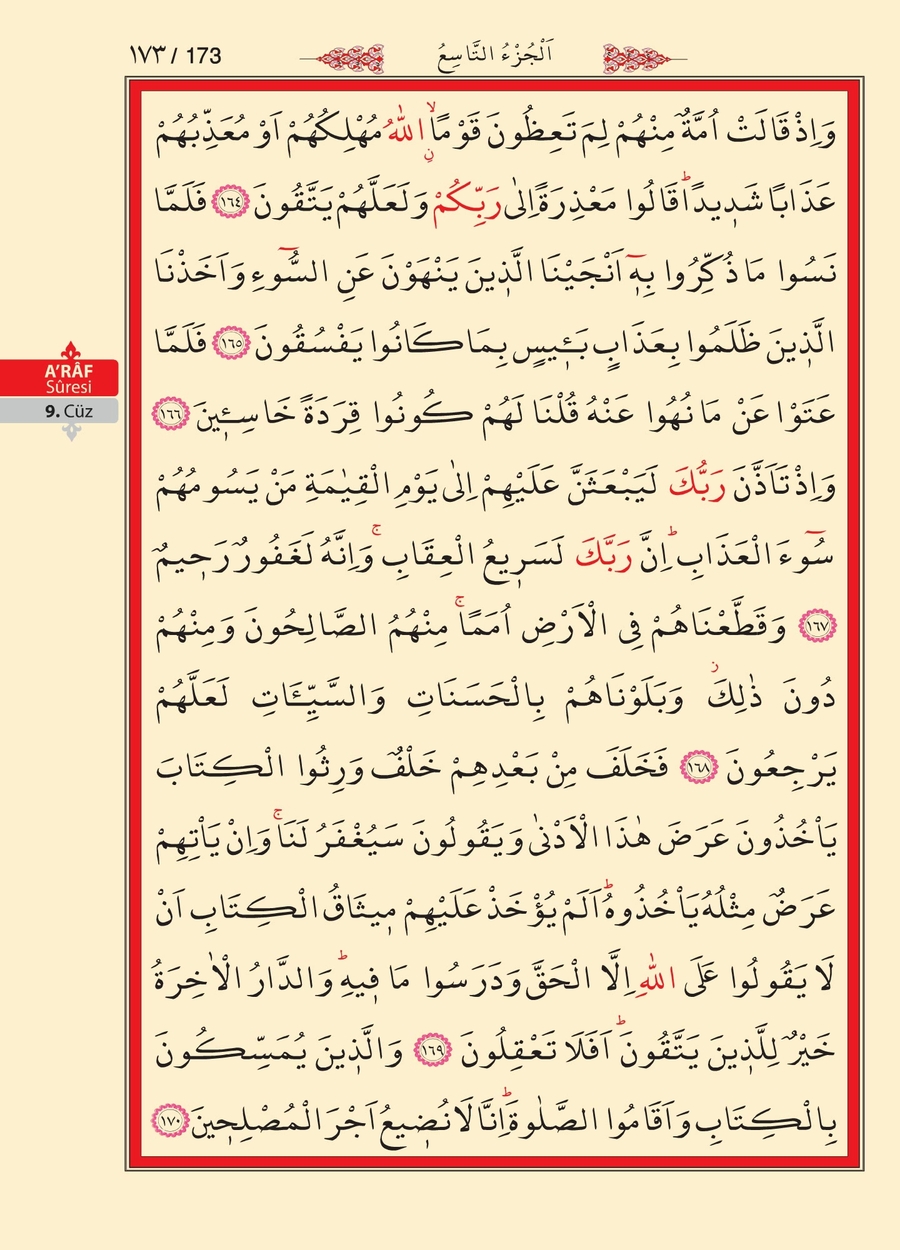 ١٧٣ / 173
اَلْجُزْءُ التَّاسِعُ
وَاِذْ قَالَتْ اُمَّةٌ مِنْهُمْ لِمَ تَعِظُونَ قَوْمًاۙ ࣙاللّٰهُ مُهْلِكُهُمْ اَوْ مُعَذِّبُهُمْ
عَذَابًا شَد۪يدًاۜ قَالُوا مَعْذِرَةً اِلٰى رَبِّكُمْ وَلَعَلَّهُمْ يَتَّقُونَ ﴿١٦٤﴾ فَلَمَّا
نَسُوا مَا ذُكِّرُوا بِه۪ٓ اَنْجَيْنَا الَّذ۪ينَ يَنْهَوْنَ عَنِ السُّٓوءِ وَاَخَذْنَا
الَّذ۪ينَ ظَلَمُوا بِعَذَابٍ بَـ۪ٔيسٍ بِمَا كَانُوا يَفْسُقُونَ ﴿١٦٥﴾ فَلَمَّا
عَتَوْا عَنْ مَا نُهُوا عَنْهُ قُلْنَا لَهُمْ كُونُوا قِرَدَةً خَاسِـ۪ٔينَ ﴿١٦٦﴾
وَاِذْ تَاَذَّنَ رَبُّكَ لَيَبْعَثَنَّ عَلَيْهِمْ اِلٰى يَوْمِ الْقِيٰمَةِ مَنْ يَسُومُهُمْ
سُٓوءَ الْعَذَابِۜ اِنَّ رَبَّكَ لَسَر۪يعُ الْعِقَابِۚ وَاِنَّهُ لَغَفُورٌ رَح۪يمٌ
﴿١٦٧﴾ وَقَطَّعْنَاهُمْ فِى الْاَرْضِ اُمَمًاۚ مِنْهُمُ الصَّالِحُونَ وَمِنْهُمْ
دُونَ ذٰلِكَۘ وَبَلَوْنَاهُمْ بِالْحَسَنَاتِ وَالسَّيِّـَٔاتِ لَعَلَّهُمْ
يَرْجِعُونَ ﴿١٦٨﴾ فَخَلَفَ مِنْ بَعْدِهِمْ خَلْفٌ وَرِثُوا الْكِتَابَ
يَاْخُذُونَ عَرَضَ هٰذَا الْاَدْنٰى وَيَقُولُونَ سَيُغْفَرُ لَنَاۚ وَاِنْ يَاْتِهِمْ
عَرَضٌ مِثْلُهُ يَاْخُذُوهُۜ اَلَمْ يُؤْخَذْ عَلَيْهِمْ م۪يثَاقُ الْكِتَابِ اَنْ
لَا يَقُولُوا عَلَى اللّٰهِ اِلَّا الْحَقَّ وَدَرَسُوا مَا ف۪يهِۜ وَالدَّارُ الْاٰخِرَةُ
خَيْرٌ لِلَّذ۪ينَ يَتَّقُونَۜ اَفَلَا تَعْقِلُونَ ﴿١٦٩﴾ وَالَّذ۪ينَ يُمَسِّكُونَ
بِالْكِتَابِ وَاَقَامُوا الصَّلٰوةَۜ اِنَّا لَا نُض۪يعُ اَجْرَ الْمُصْلِح۪ينَ ﴿١٧٠﴾
A'RÂF
Sûresi
9. Cüz